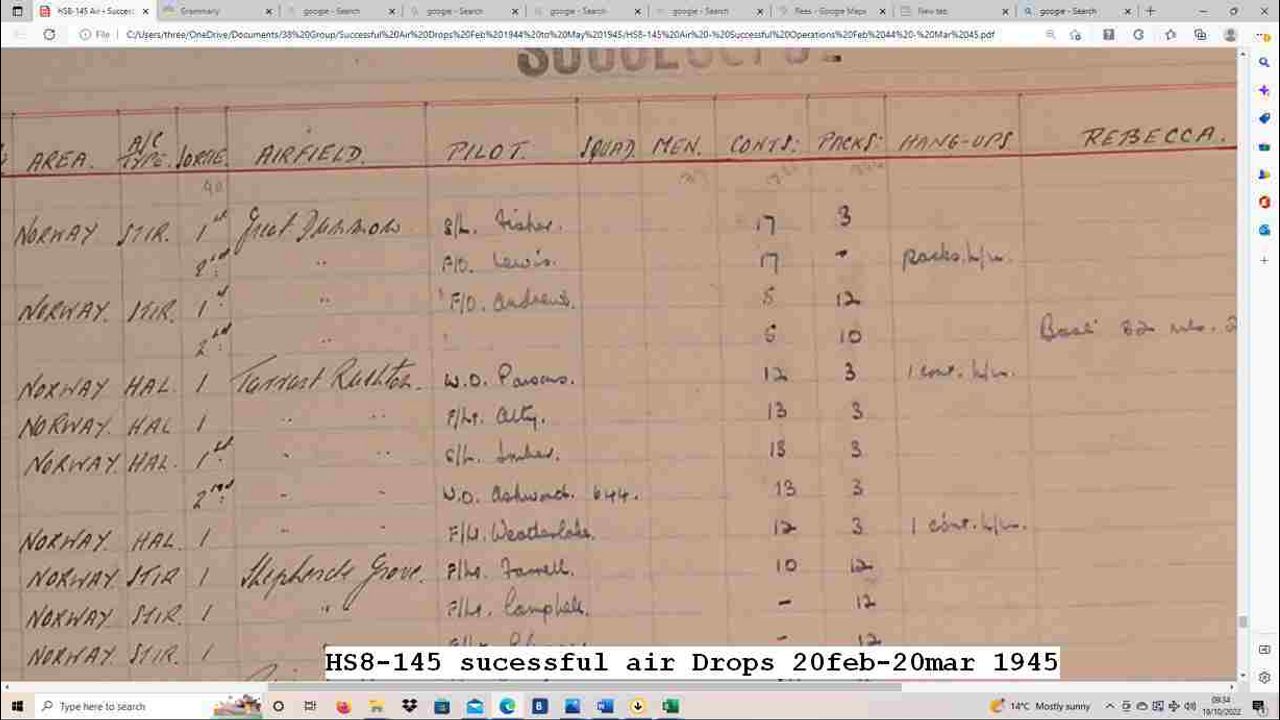 HS8-145 Air - Success
Grammarly
google - Search
google - Search
google - Search
google - Search
Rees - Google Maps
New tab
google - Search
File
C:/Users/three/OneDrive/Documents/38%20Group/Successful%20Air%20Drops%20Feb%201944%20to%20May%201945/HS8-145%20Air%20-%20Successful%20Operations%20Feb%2044%20-%20Mar%2045.pdf
AREA. A/C TYPE. SORTIE. AIRFIELD. PILOT. SQUAD. MEN. CONTS: PACKS: HANG-UPS REBECCA.
NORWAY STIR. 1st Great Dunmow S/L. Fisher. 17 3
2nd " F/O. Lewis. 17 - packs. h/u.
NORWAY. STIR. 1st " F/O. Andrews. 5 12
2nd " 5 10
NORWAY HAL. 1 Tarrant Rushton. W.O. Parsons. 12 3 1 cont. h/u.
NORWAY. HAL 1 " " F/Lt. 13 3
NORWAY. HAL. 1st " " S/L. 13 3
2nd " " W.O. Ashworth. 644. 13 3
NORWAY. HAL. 1 " " F/Lt. 12 3 1 cont. h/u.
NORWAY. STIR 1 Shepherds Grove. F/Lt. Farrell. 10 12
NORWAY. STIR. 1 " F/Lt. Campbell. - 12
NORWAY. STIR. 1 - 12
HS8-145 sucessful air Drops 20feb-20mar 1945
Type here to search
14°C Mostly sunny
09:34
19/10/2022